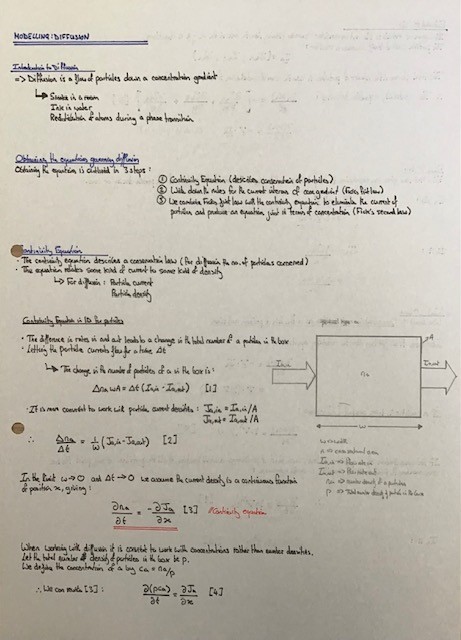 MODELLING: DIFFUSION
Introduction to Diffusion
=> Diffusion is a flow of particles down a concentration gradient
↳ Smoke in a room
Ink in water
Redistribution of atoms during a phase transition
Obtaining the equations governing diffusion
Obtaining the equation is outlined in 3 steps:
① Continuity Equation (describes conservation of particles)
② Write down the rules for the current in terms of conc gradient (Fick's first law)
③ We combine Fick's first law with the continuity equation to eliminate the current of
particles and produce an equation just in terms of concentration (Fick's second law)
Continuity Equation
· The continuity equation describes a conservation law (For diffusion the no. of particles conserved)
· The equation relates some kind of current to some kind of density
↳ For diffusion: Particle current
Particle density
Continuity Equation in 1D for particles
· The difference in rates in and out leads to a change in the total number of a particles in the box
· Letting the particle currents flow for a time Δt
↳ The change in the number of particles of a in the box is:
Δna wA = Δt (Ia,in - Ia,out) [1]
· It is more convenient to work with particle current densities: Ja,in = Ia,in/A
Ja,out = Ia,out/A
∴ Δna/Δt = 1/w (Ja,in - Ja,out) [2]
Ia,in
na
Ia,out
A
w
In the limit w→0 and Δt→0 we assume the current density is a continuous function
of position x, giving:
∂na/∂t = -∂Ja/∂x [3] Continuity equation
When working with diffusion it is convenient to work with concentrations rather than number densities.
Let the total number density of particles in the box be ρ.
We define the concentration of a by ca = na/ρ
∴ We can rewrite [3]: ∂(ρca)/∂t = ∂Ja/∂x [4]